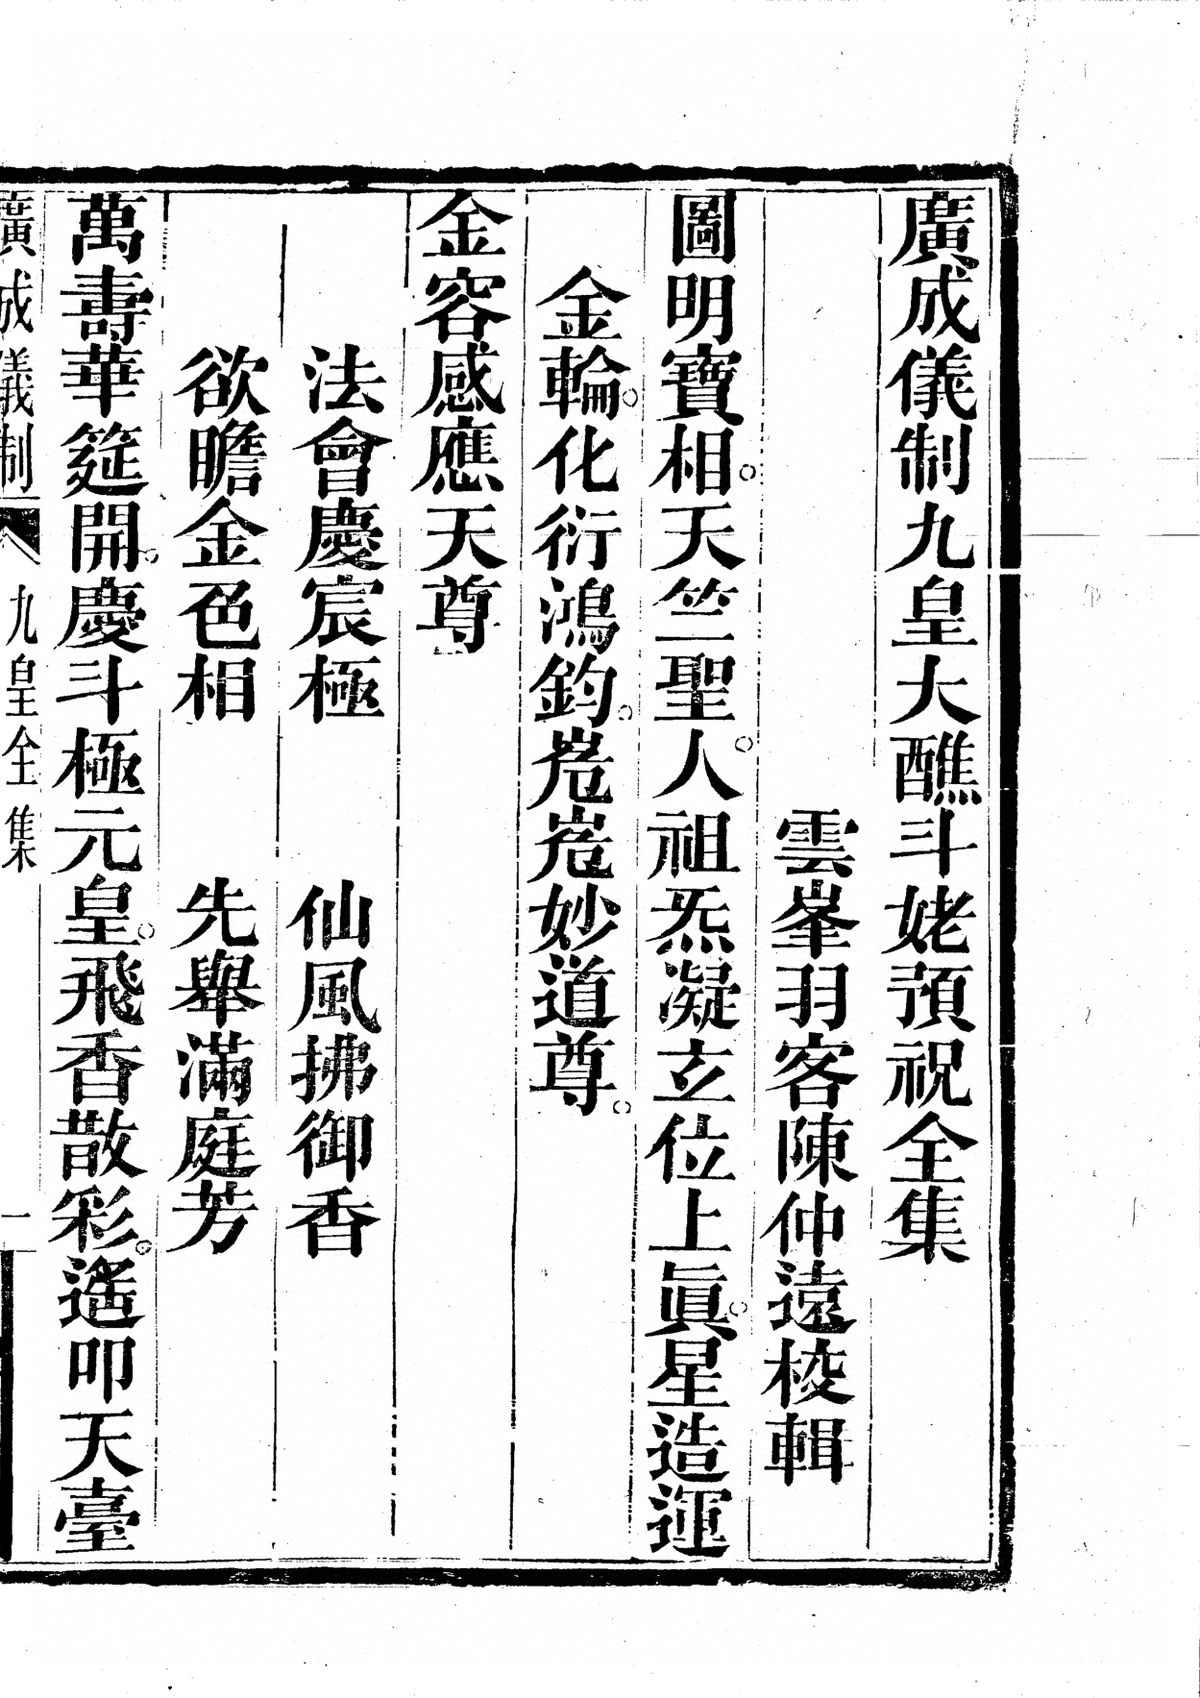 廣成儀制九皇大醮斗姥預祝全集
雲峯羽客陳仲遠校輯
圖明寶相。天竺聖人。祖炁凝玄位上眞。星造運
金輪。化衍鴻鈞。嵬嵬妙道尊。
金容感應天尊
法會慶宸極　仙風拂御香
欲瞻金色相　先舉滿庭芳
萬壽華筵開。慶斗極元皇。飛香散彩。遙叩天臺
廣成儀制　九皇全集　一